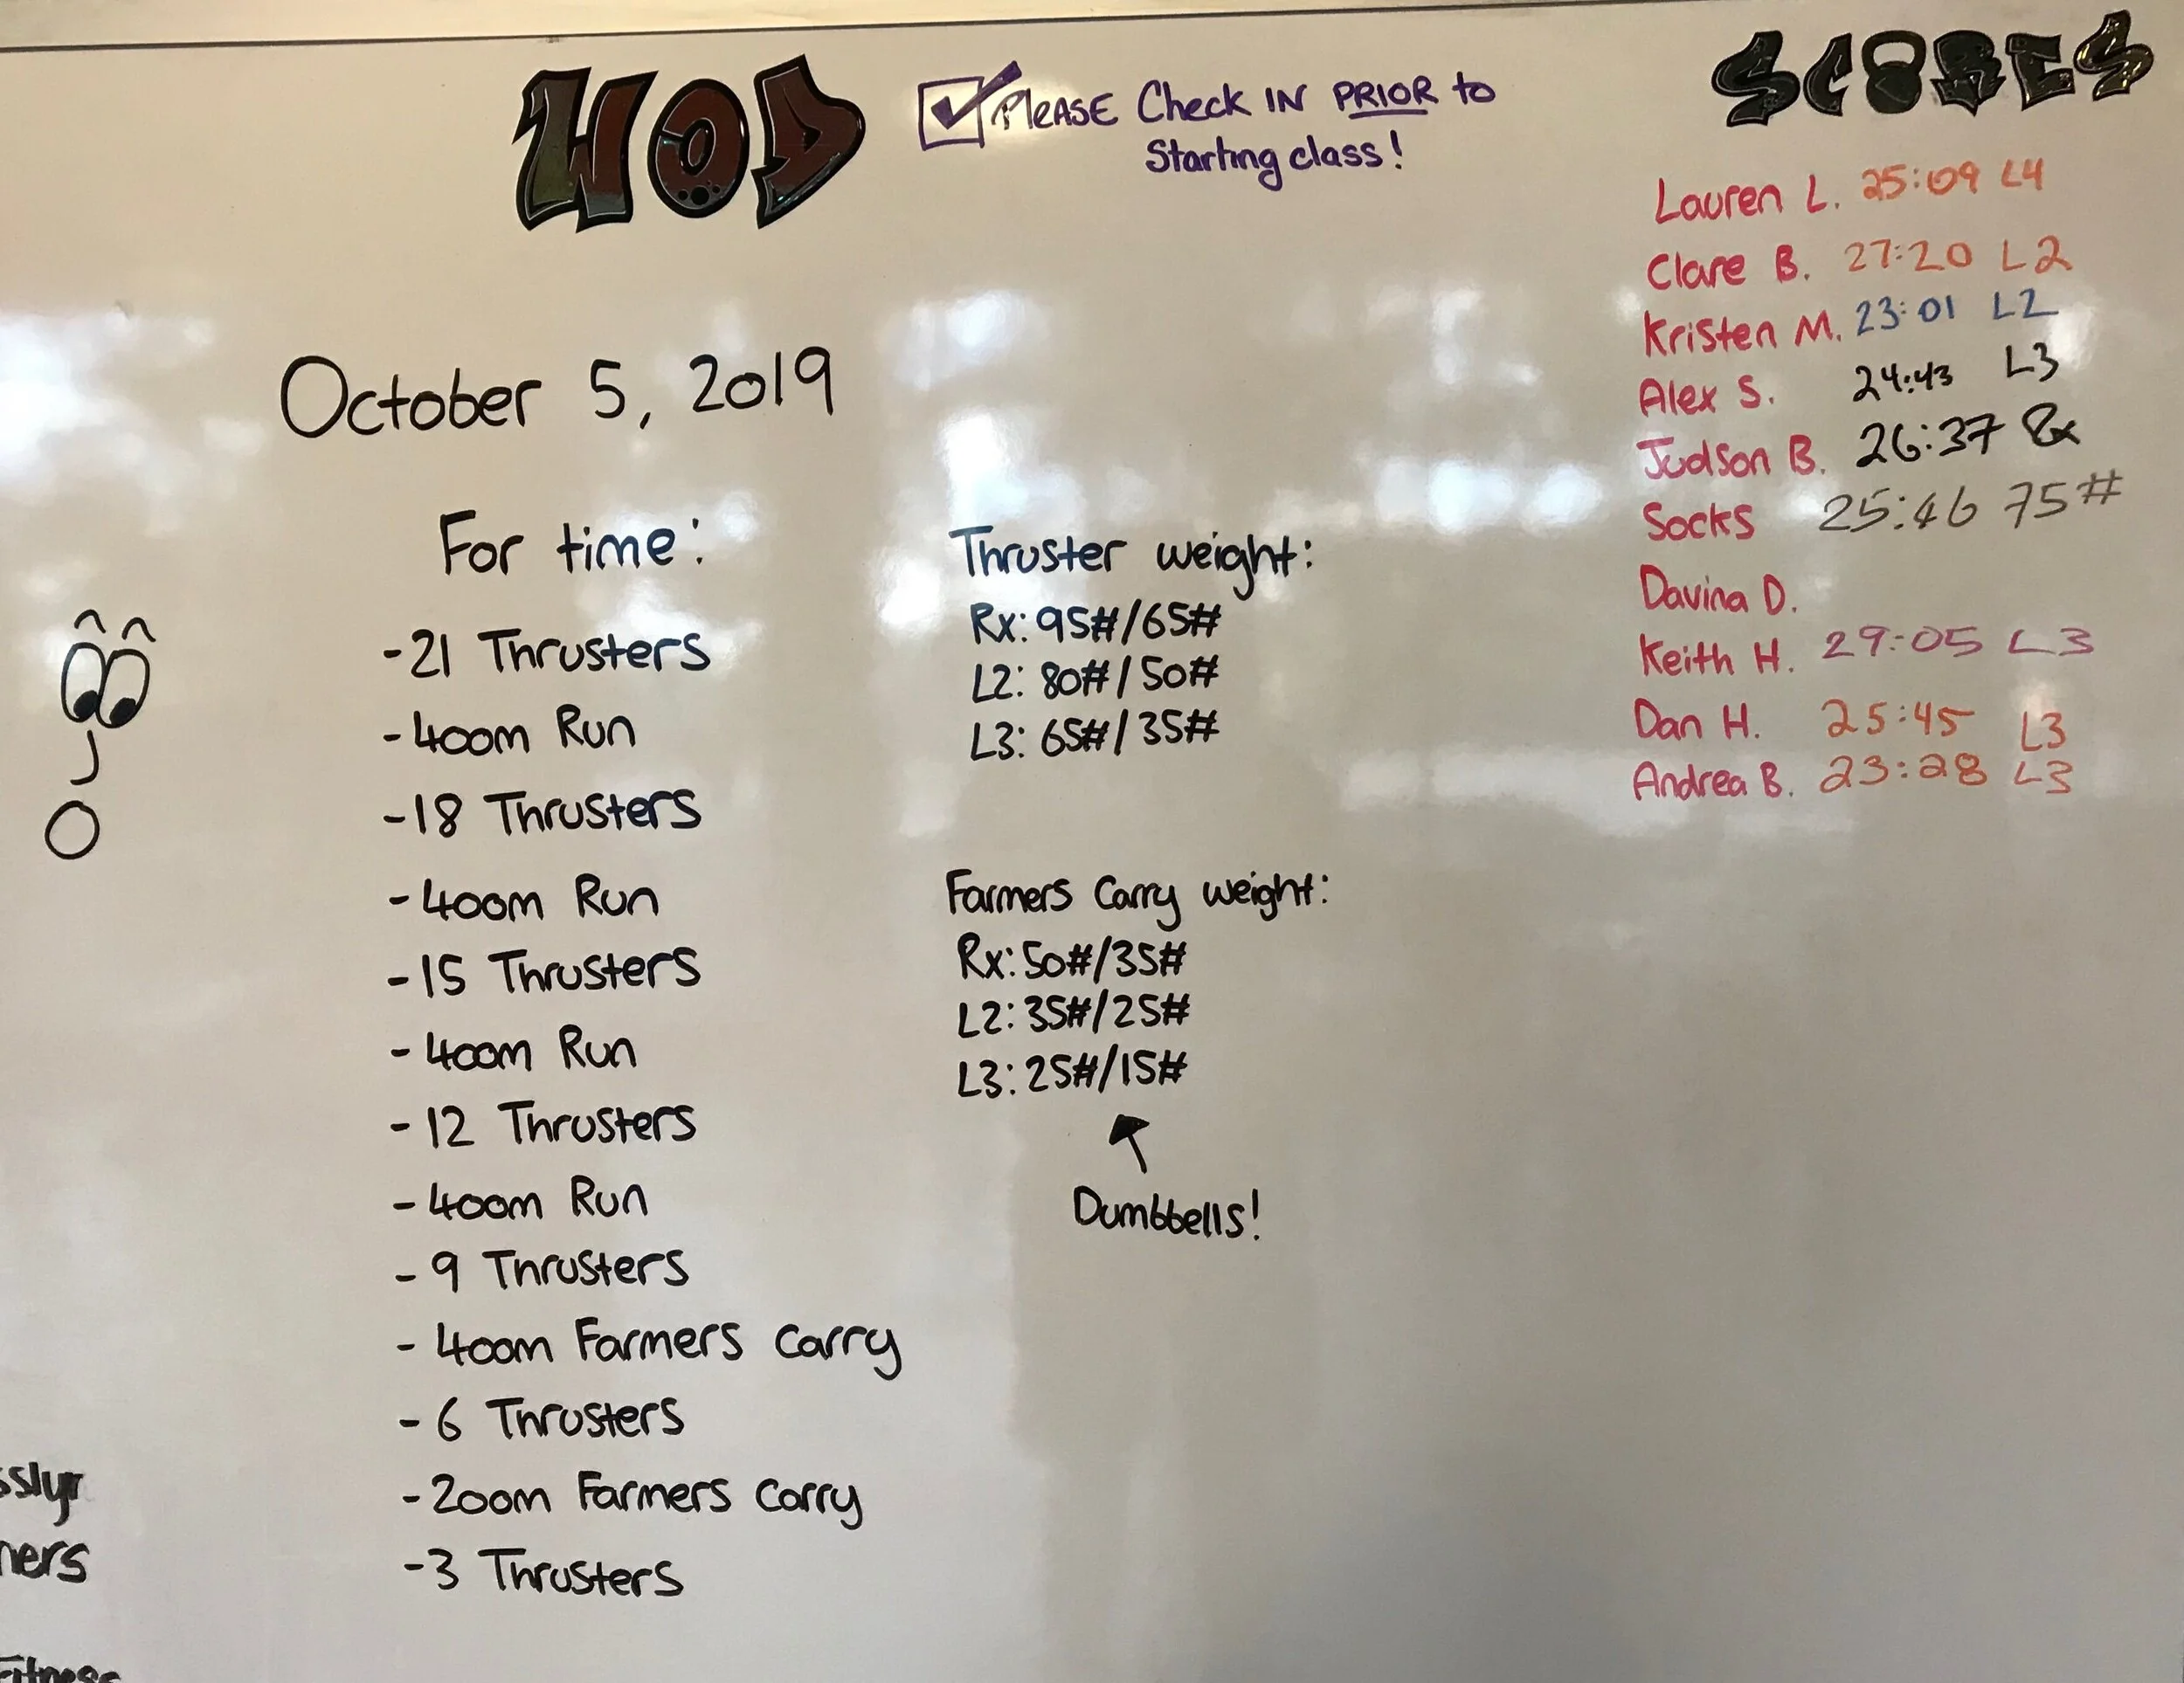 WOD
Please Check in PRIOR to
Starting class!
October 5, 2019
For time:
-21 Thrusters
-400m Run
-18 Thrusters
-400m Run
-15 Thrusters
-400m Run
-12 Thrusters
-400m Run
-9 Thrusters
-400m Farmers Carry
-6 Thrusters
-200m Farmers Carry
-3 Thrusters
Thruster weight:
Rx: 95#/65#
L2: 80#/50#
L3: 65#/35#
Farmers Carry weight:
Rx: 50#/35#
L2: 35#/25#
L3: 25#/15#
Dumbbells!
SCORES
Lauren L. 25:09 L4
Clare B. 27:20 L2
Kristen M. 23:01 L2
Alex S. 24:43 L3
Judson B. 26:37 Rx
Socks 25:46 75#
Davina D.
Keith H. 29:05 L3
Dan H. 25:45 L3
Andrea B. 23:28 L3